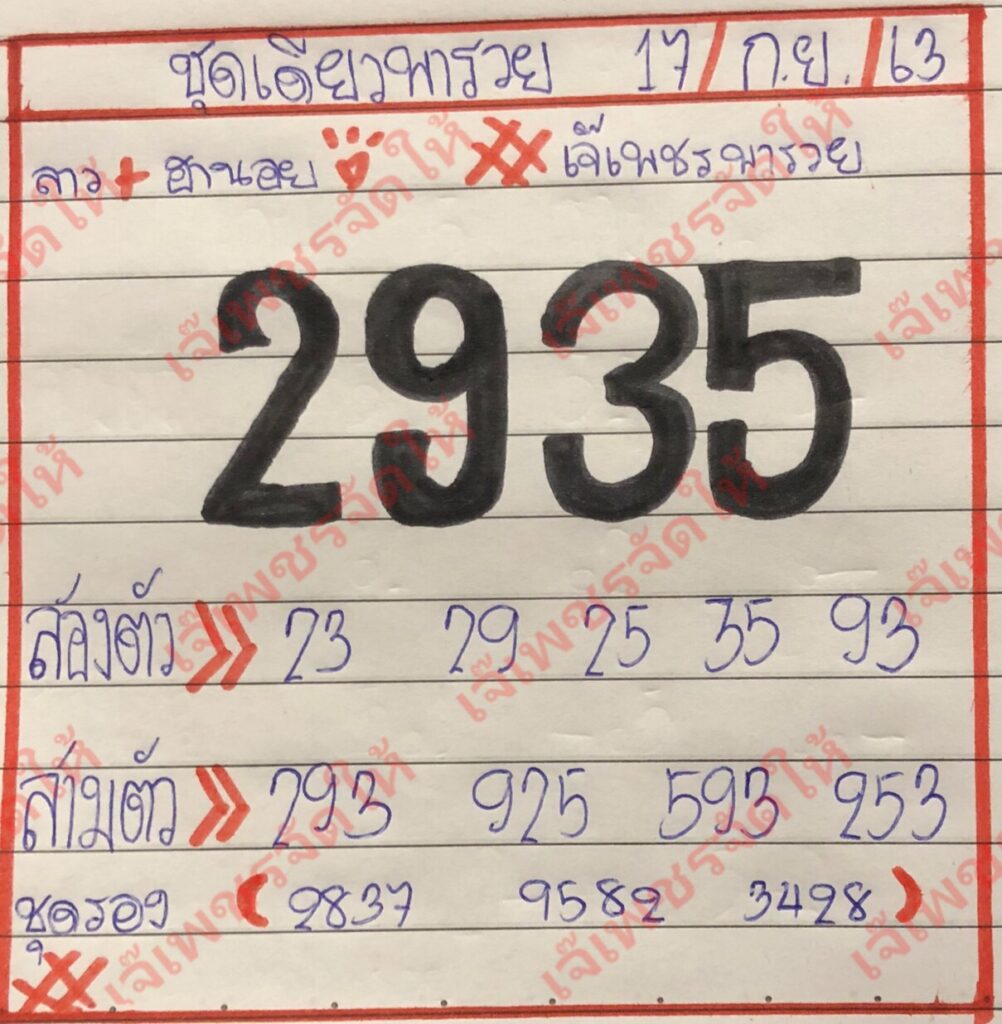 ชุดเดียวพารวย 17/ก.ย./63
ลาว + ฮานอย XX เจ๊เพชรพารวย
2935
สองตัว » 23 29 25 35 93
สามตัว » 293 925 593 253
ชุดรอง ( 2837 9582 3428 )
XX
เจ๊เพชรจัดให้